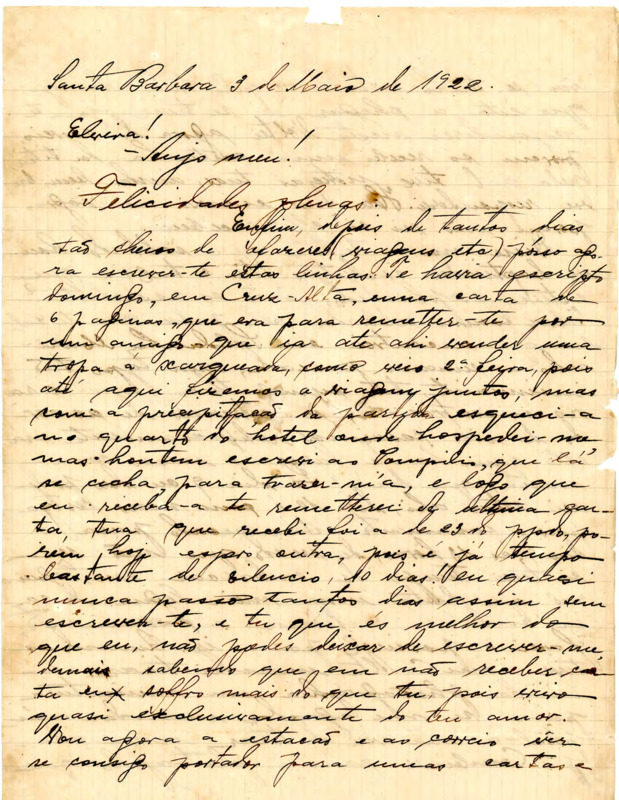 Santa Barbara 3 de Maio de 1922.
Elvira!
– Anjo meu!
Felicidades plenas.
Emfim, depois de tantos dias
tão cheios de afareres (viagens etc) pósso ago-
ra escrever-te estas linhas. Te havia escripto
domingo, em Cruz-Alta, uma carta de
6 paginas, que era para remetter-te por
um amigo que ia até ahi vender uma
tropa á xarqueada, como veio 2ª feira, pois
até aqui fizemos a viagem juntos, mas
com a precipitação da partida esqueci-a
no quarto do hotel onde hospedei-me
mas hontem escrevi ao Pompilio, que lá
se acha, para trazer-m'a, e logo que
eu receba-a te remetterei. A ultima car-
ta tua que recebi foi a de 23 do ppdo, po-
rém hoje espero outra, pois é já tempo
bastante de silencio, 10 dias! eu quasi
nunca passo tantos dias assim sem
escrever-te, e tu que és melhor do
que eu, não pódes deixar de escrever-me,
demais sabendo que em não receber car-
ta eu soffro mais do que tu, pois vivo
quasi exclusivamente do teu amor.
Vou agora a estacão e ao correio vêr
se consigo portador para umas cartas e